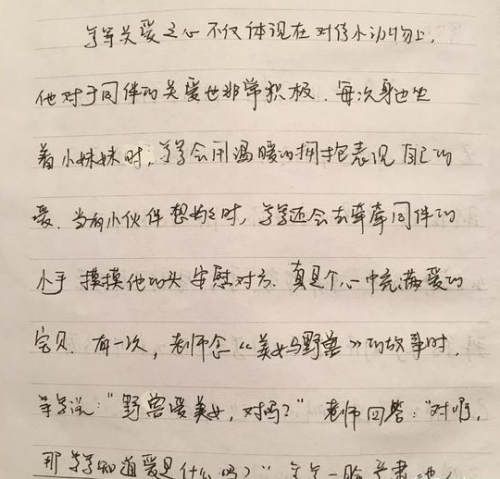 学学关爱之心不仅体现在对待小动物上,
他对于同伴的关爱也非常积极. 每次身边坐
着小妹妹时, 学学会用温暖的拥抱表现自己的
爱. 当有小伙伴想妈妈时, 学学还会去牵牵同伴的
小手 摸摸他的头 安慰对方. 真是个心中充满爱的
宝贝. 有一次, 老师念《美女与野兽》的故事时,
学学说:“野兽爱美女, 对吗?” 老师回答:“对啊,
那学学知道爱是什么吗?” 学学一脸严肃地